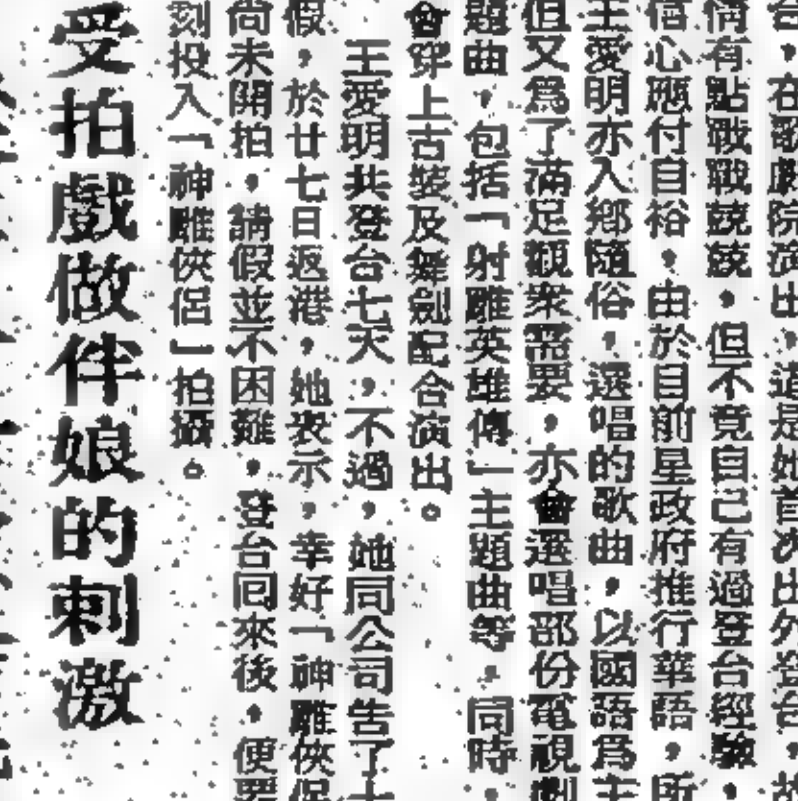 台，在歌劇院演出，這是她首次出外登台，故
倘有點戰戰兢兢，但不竟自己有過登台經驗，
信心應付自裕，由於目前星政府推行華語，所
王愛明亦入鄉隨俗，選唱的歌曲，以國語爲主
但又爲了滿足觀衆需要，亦會選唱部份電視劇
題曲，包括「射雕英雄傳」主題曲等，同時，
會穿上古裝及舞劍配合演出。
王愛明共登台七天，不過，她同公司告了十
假，於廿七日返港，她表示，幸好「神雕俠侶
尚未開拍，請假並不困難，登台回來後，便要
刻投入「神雕俠侶」拍攝。
受拍戲做伴娘的刺激